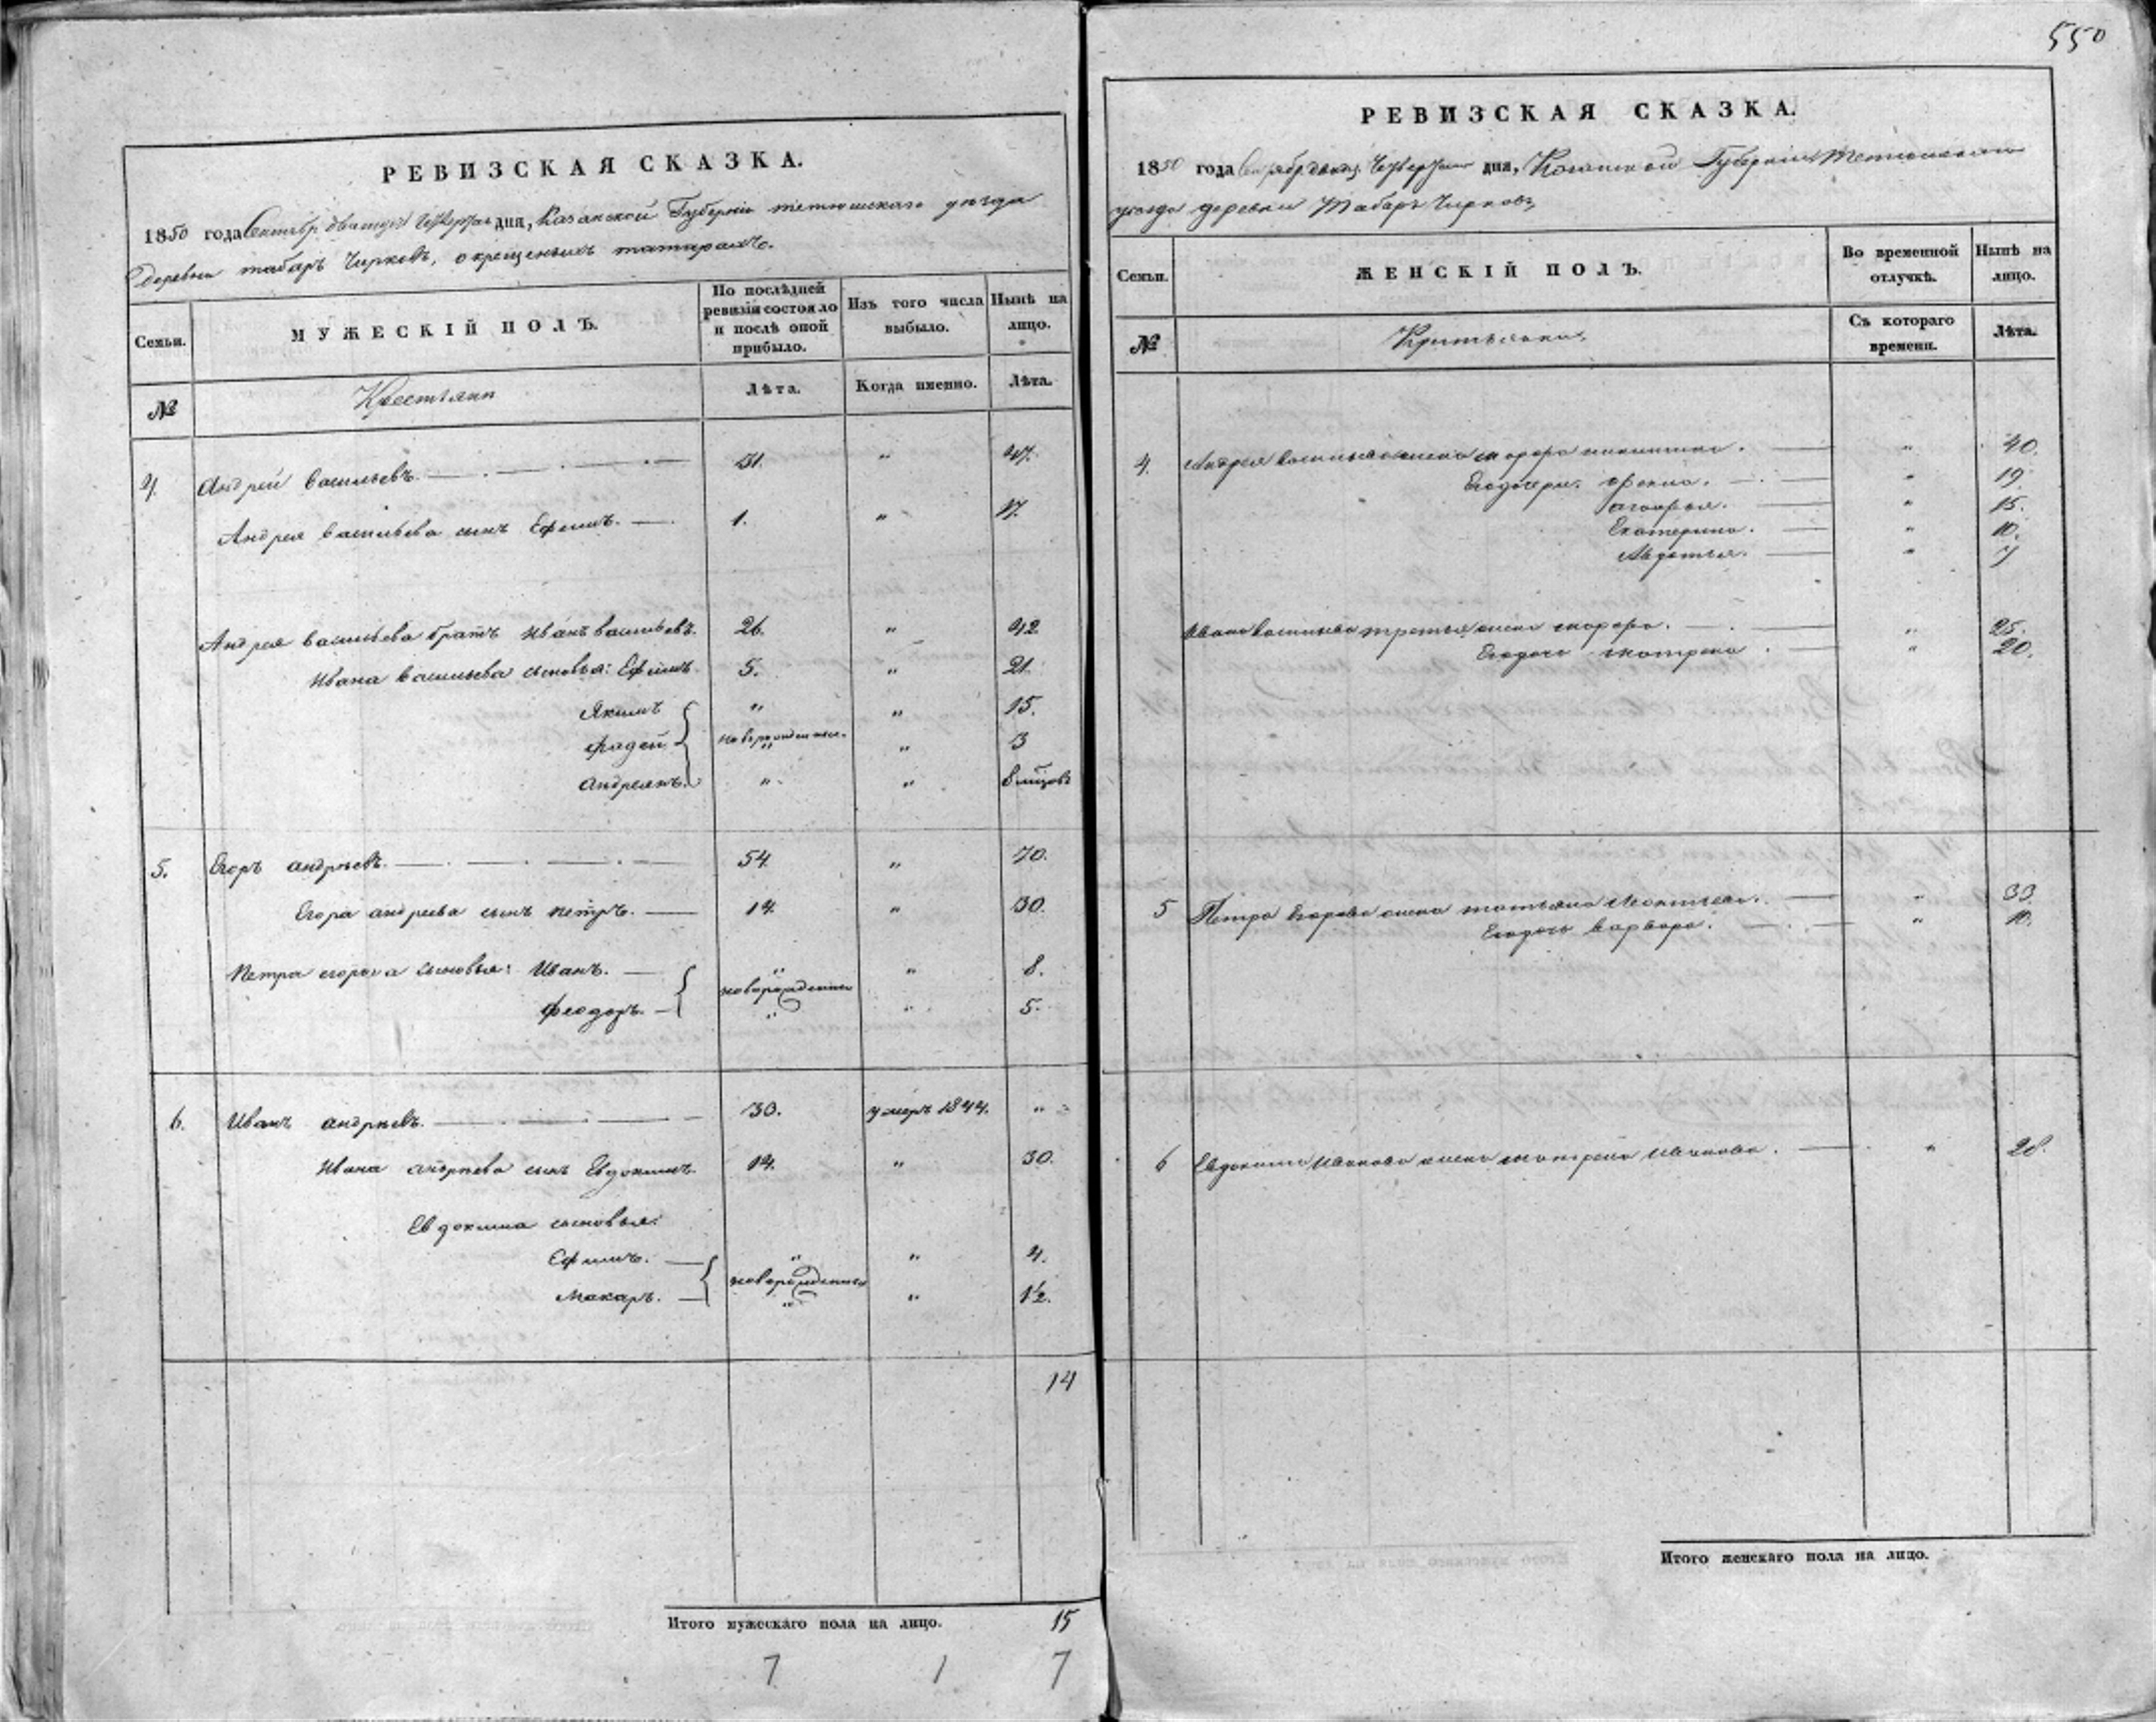 РЕВИЗСКАЯ СКАЗКА.
1850 года Сентябр двадцат Четвертаго дня, Казанской Губерніи тетюшскаго уезда
деревни табарь Чирковъ, о крещеныхъ татарахъ.
Семьи.
МУЖЕСКІЙ ПОЛЪ.
По послѣдней ревизіи состояло и послѣ оной прибыло.
Изъ того числа выбыло.
Нынѣ на лицо.
№
Крестьяни
Лѣта.
Когда именно.
Лѣта.
4. Андрей васильевъ. 31. " 47.
Андрея васильева сынъ Ефимъ. 1. " 17.
Андрея васильева братъ Иванъ васильевъ. 26. " 42.
Ивана васильева сыновья: Ефимъ. 5. " 21.
Якимъ " " 15.
фадей новорожденные " 3
андреянъ. " " 8 мцовъ
5. Егоръ андреевъ. 54. " 70.
Егора андреева сынъ петръ. 14. " 30.
Петра егорова сыновья: Иванъ. " " 8.
новорожденные
феодоръ. " " 5.
6. Иванъ андреевъ. 30. умеръ 1844. "
Ивана андреева сынъ Евдокимъ. 14. " 30.
Евдокима сыновья:
Ефимъ. " " 4.
новорожденные
Макаръ. " " 1½.
14
Итого мужескаго пола на лицо. 15
7 1 7
550
РЕВИЗСКАЯ СКАЗКА.
1850 года Сентябр двадц. Четвертаго дня, Казанской Губерніи Тетюшскаго
уезда деревни Табарь Чирковъ
Семьи.
ЖЕНСКІЙ ПОЛЪ.
Во временной отлучкѣ.
Нынѣ на лицо.
№
Крестьянки
Съ котораго времени.
Лѣта.
4. Андрея васильева жена марфа никитина. " 40.
Егодочери: офекла. " 19.
агафья. " 15.
Екатерина. " 10.
Авдотья. " 7
Ивана васильева третья жена марфа. " 25.
Егодочь матрена. " 20.
5 Петра Егорова жена татьяна Леонтьева. " 33.
Егодочь варвара. " 10.
6 Евдокима Иванова жена матрена Иванова. " 28.
Итого женскаго пола на лицо.